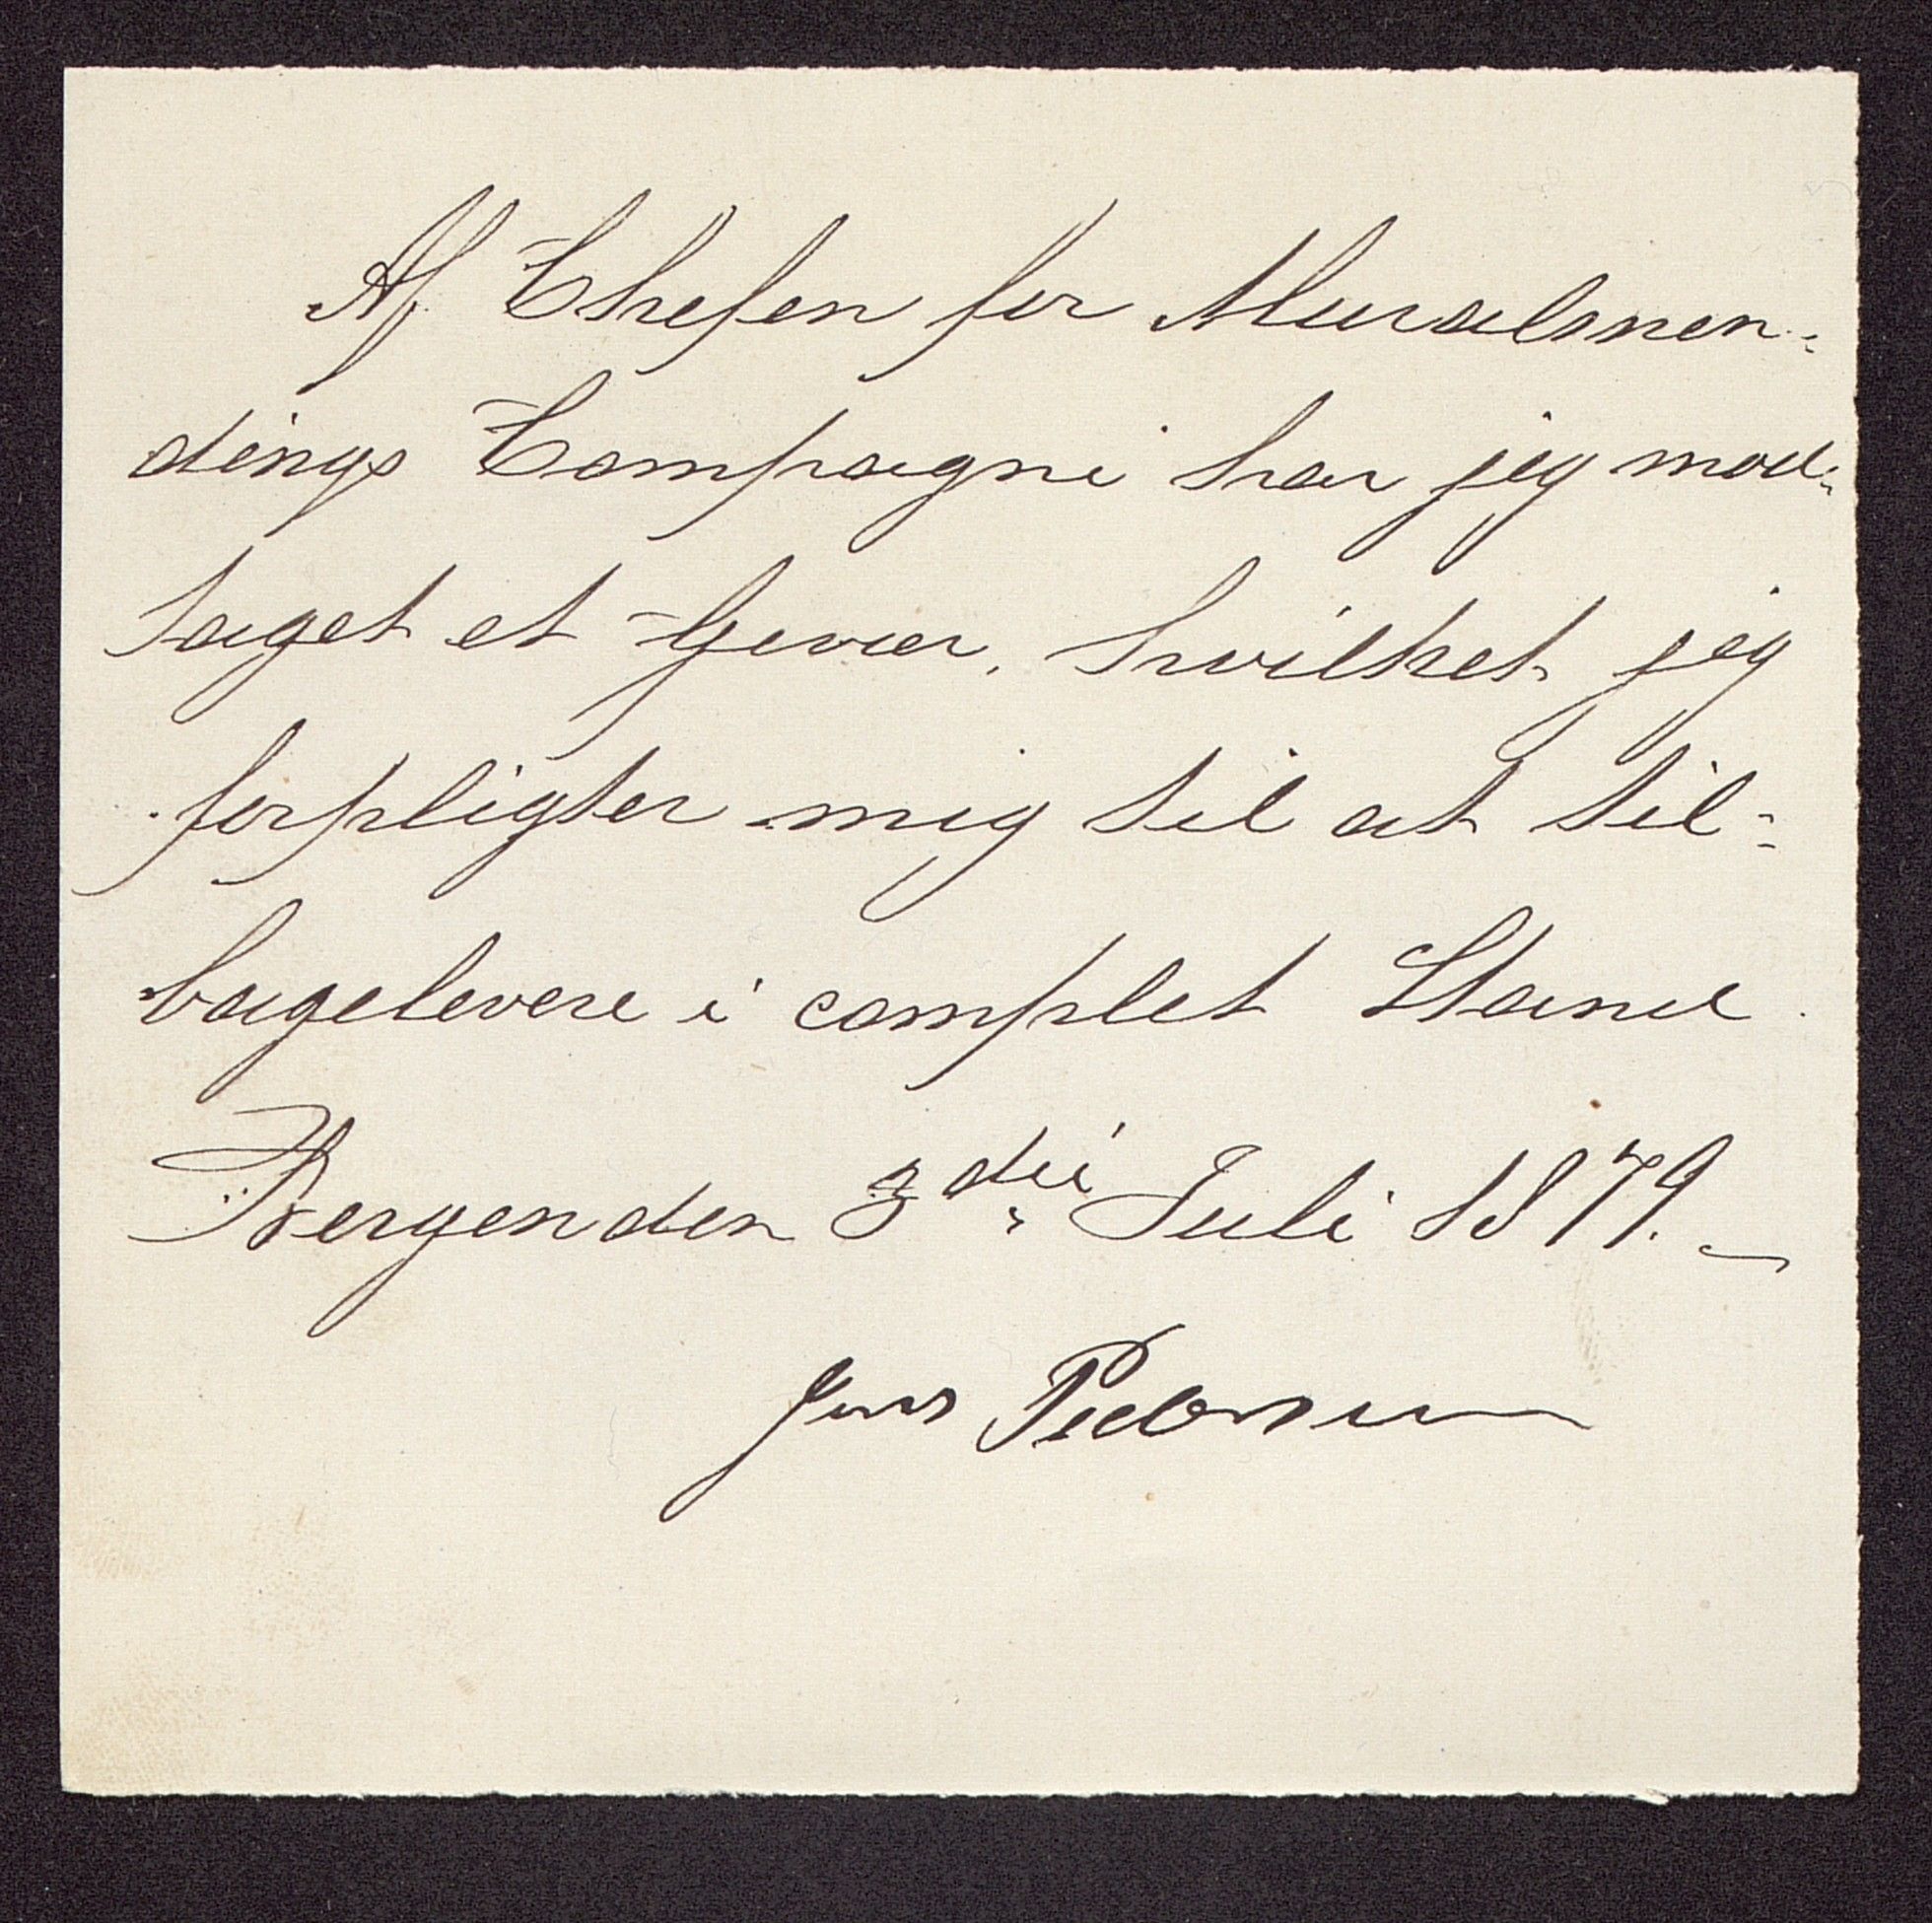 Af Chefen for Muralmen-
dings Compagni har jeg mod-
taget et Gevær, hvilket jeg
forpligter mig til at til-
bagelevere i complet Stand.
Bergen den 3die Juli 1879.
Jens Pedersen